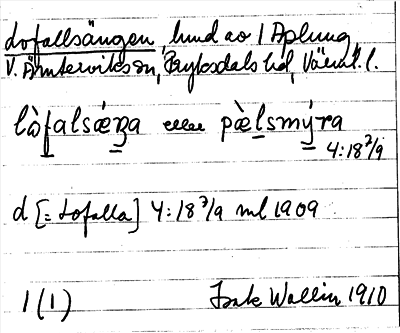 Lofallsängen, hund av 1 Aplung,
V. Ämtervikssn, Fryksdals hd, Värml. l.
lòfalsæ̀ŋa eller pæ̀lsmýra
4:18 7/9
d [= Lofalla] 4:18 7/9 ml 1909
1 (1) Isak Wallin 1910